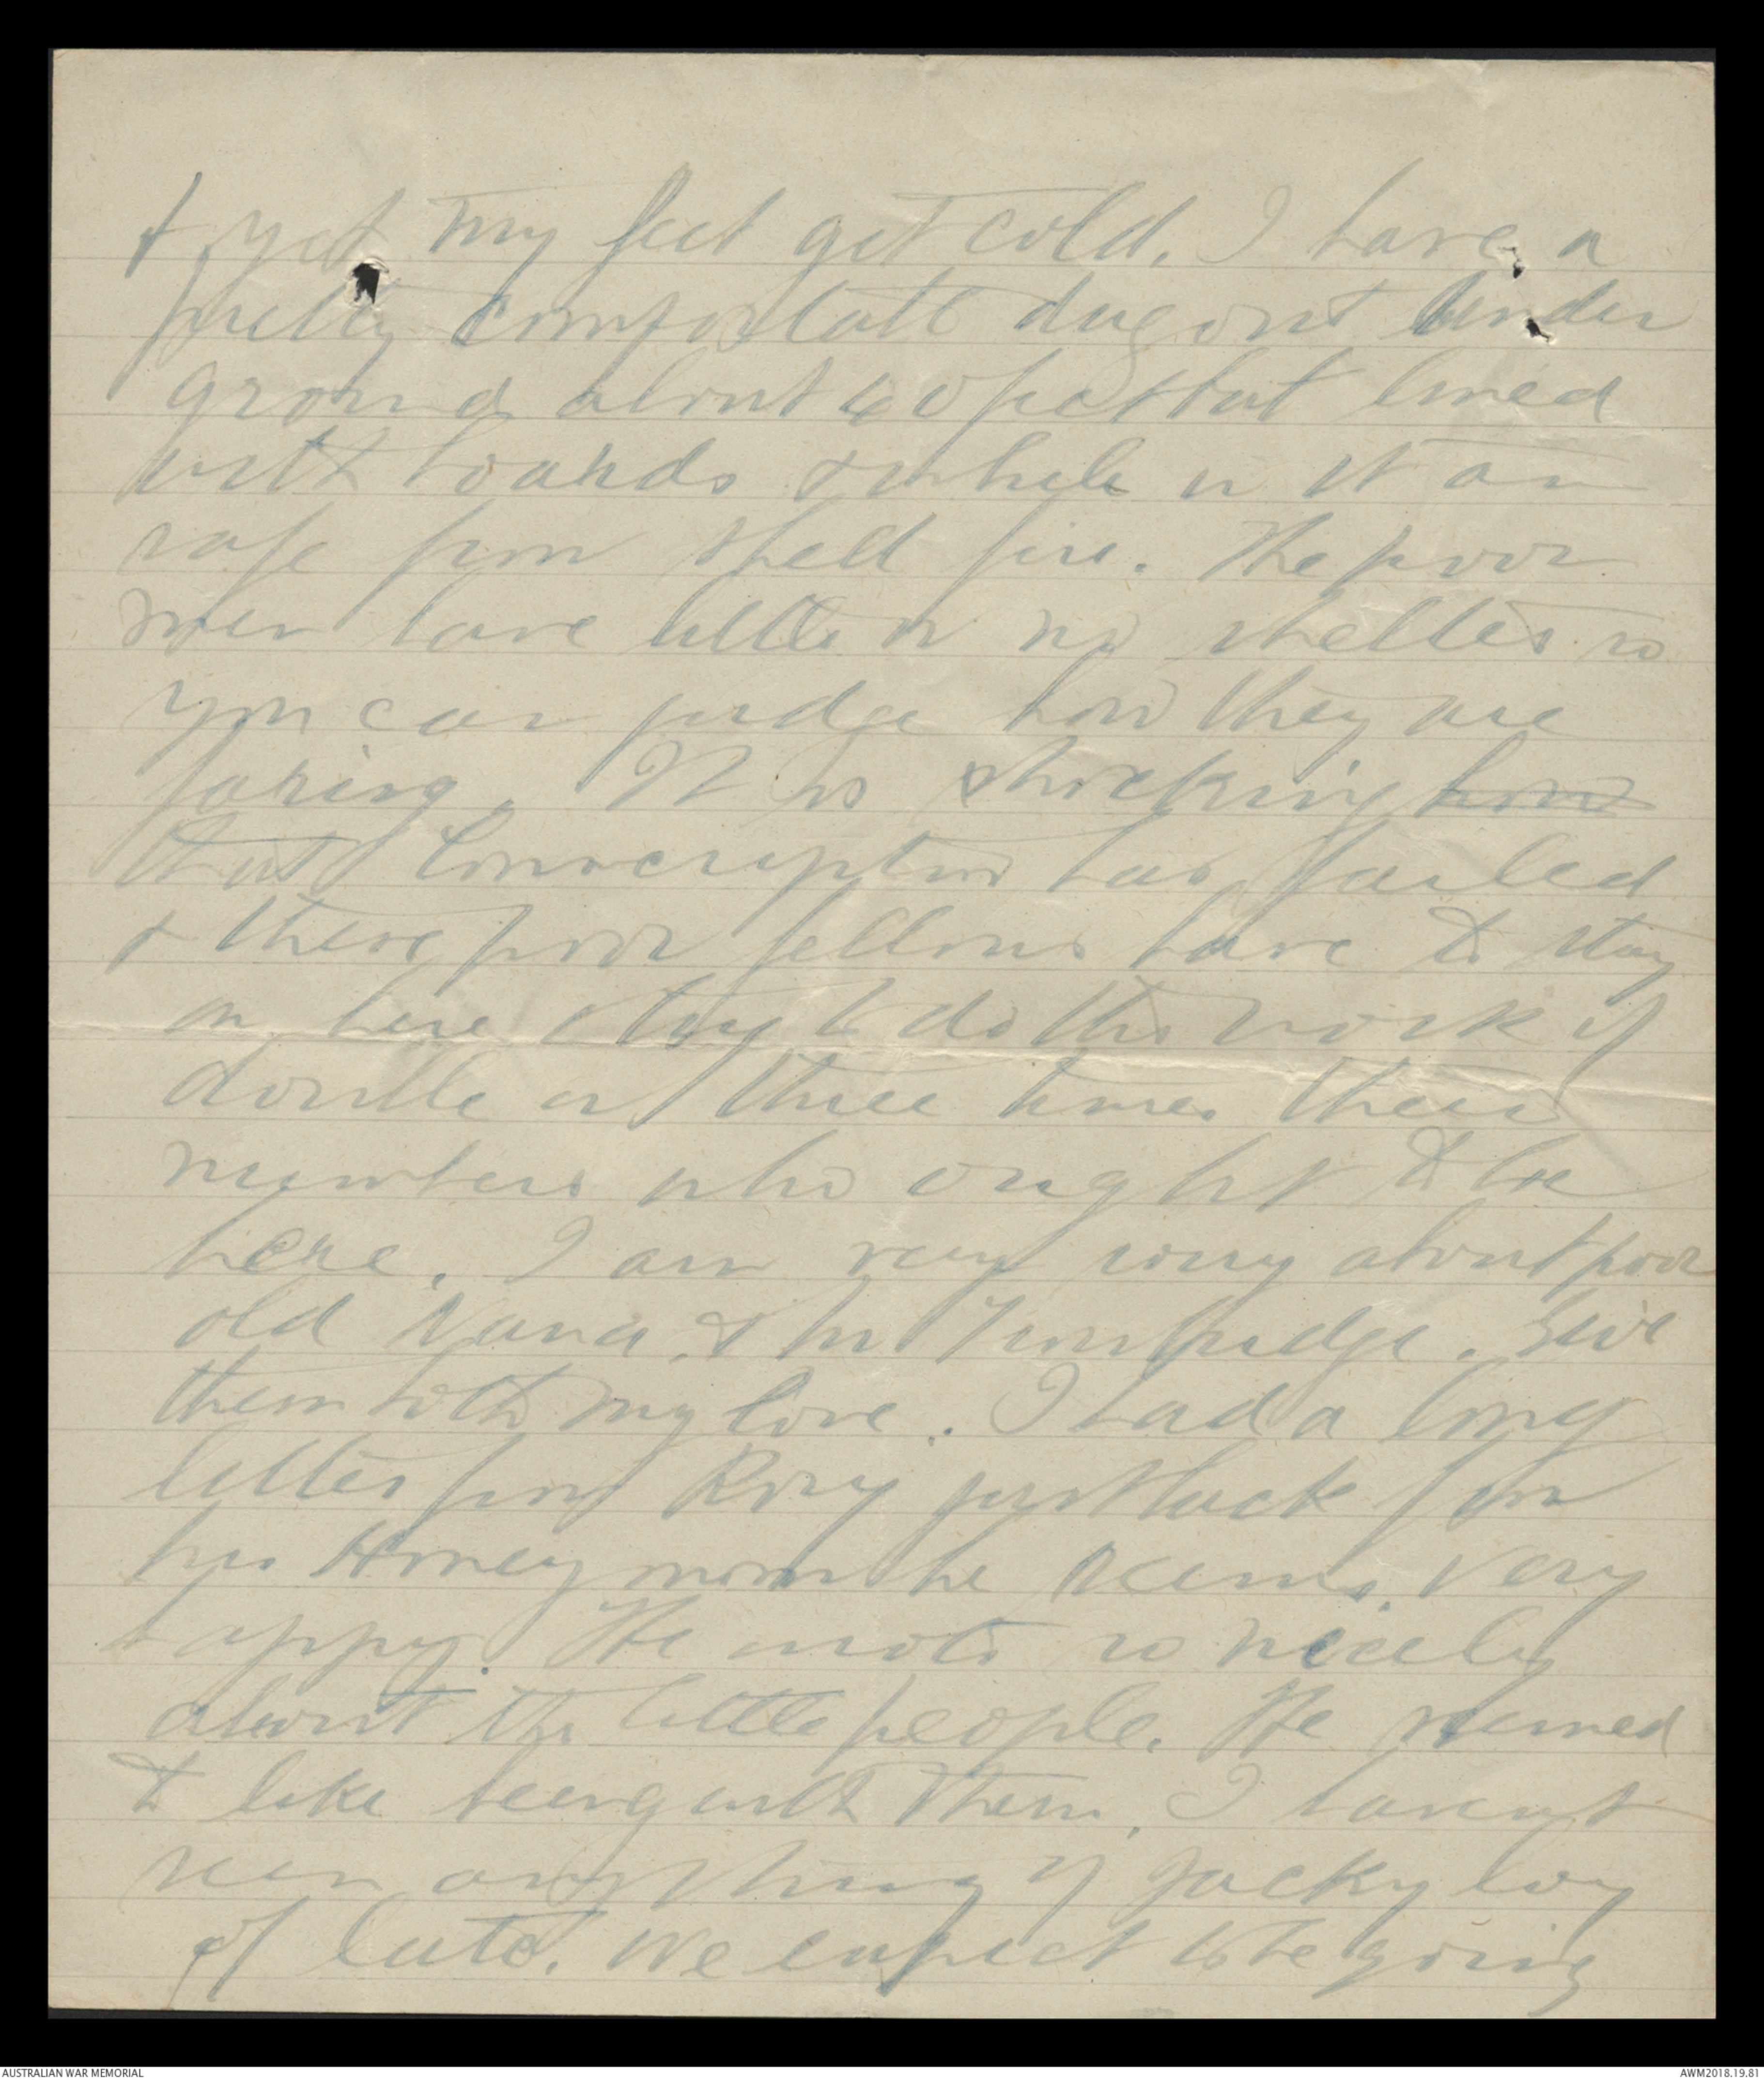 & yet my feet get cold. I have a
pretty comfortable dugout under
ground about 40 feet but lined
with boards & while in it am
safe from shell fire. The poor
men have little or no shelter so
you can judge how they are
faring. It is shocking how
that Conscription has failed
& these poor fellows have to stay
on here & try to do the work of
double or three times their
numbers who ought to be
here. I am very sorry about poor
old Nana & Mr Trumbridge. Give
them both my love. I had a long
letter from Rory just back from
his Honeymoon he seems very
happy. He wrote so nicely
about the little people. He seemed
to like being with them. I havent
seen anything of Jacky boy
of late. We expect to be going
AUSTRALIAN WAR MEMORIAL
AWM2018.19.81